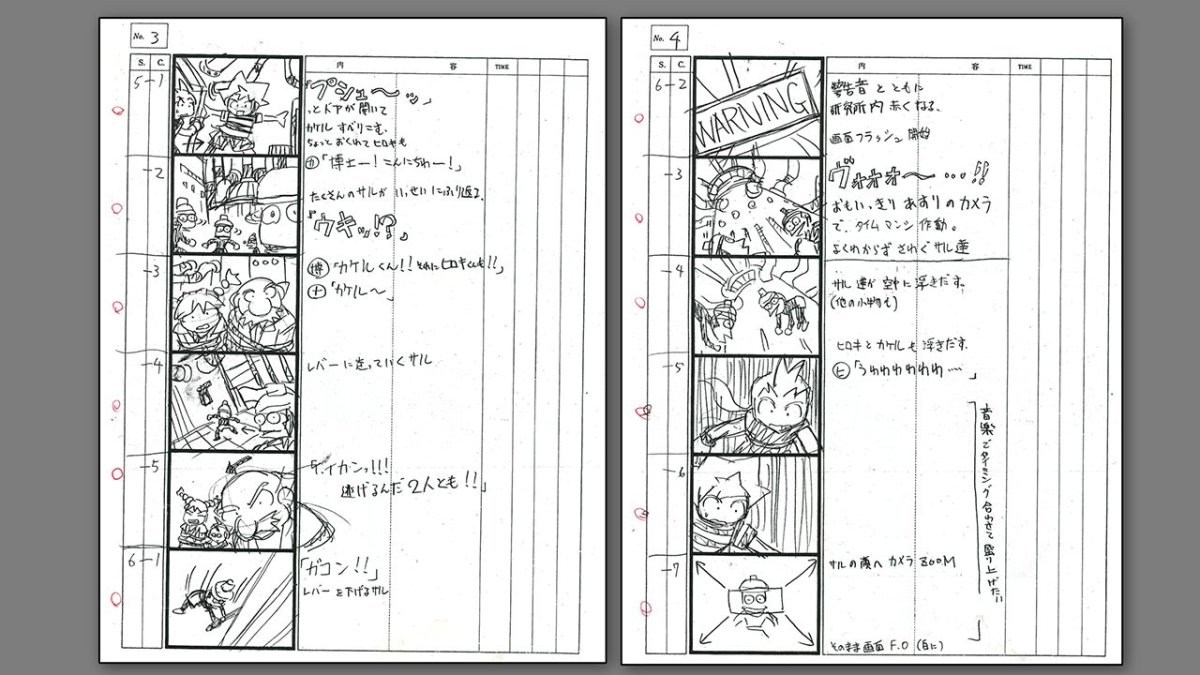 No. 3
S. C. 内 容 TIME
5-1
「プシュ〜ッ」
っとドアが開いて
カケル すべりこむ、
ちょっと おくれて ヒロキも
カ「博士ー!こんにちわー!」
-2
たくさんのサルが いっせいにふり返る
『ウキッ!?』
-3
博「カケルくん!!それにヒロキくんも!!」
ナ「カケル〜」
-4
レバーに走っていくサル
-5
「イカンッ!!!
逃げるんだ 2人とも!!」
6-1
「ガコン!!」
レバーを下げるサル
No. 4
S. C. 内 容 TIME
6-2
WARNING
警告音 と ともに
研究所内 赤くなる、
画面フラッシュ 開始
-3
ヴォォォ〜…!!
おもいっきり あおりのカメラ
で、タイムマシン 作動。
よくわからず さわぐ サル達
-4
サル達が 空中に 浮きだす。
(他の小物も)
ヒロキとカケルも 浮きだす。
-5
ヒ「うわわわわわわ…」
音楽でタイミング合わせて 盛り上げたい
-6
-7
サルの顔へ カメラ ZOOM
そのまま画面 F.O (白に)